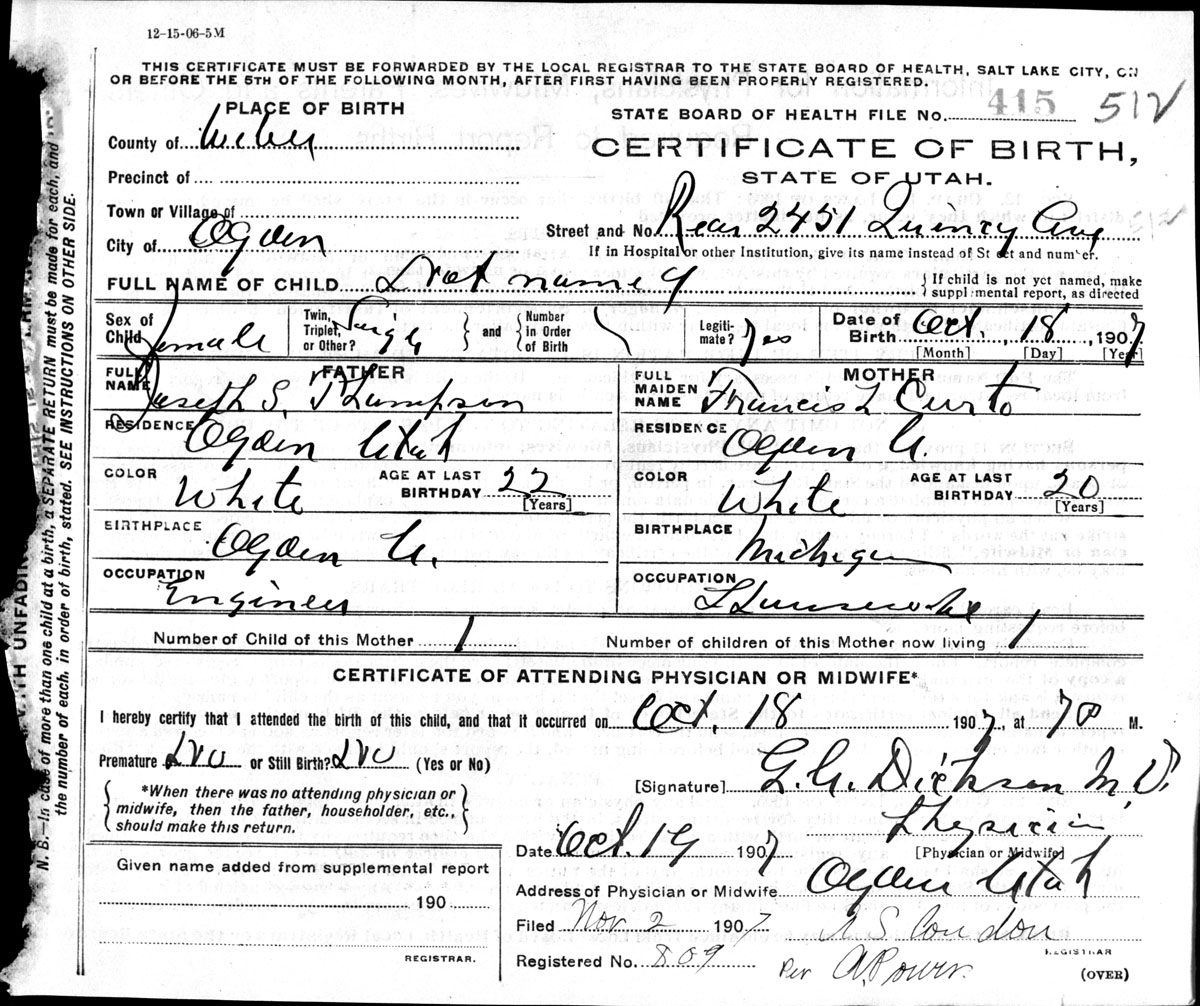 12-15-06-5M
THIS CERTIFICATE MUST BE FORWARDED BY THE LOCAL REGISTRAR TO THE STATE BOARD OF HEALTH, SALT LAKE CITY, ON
OR BEFORE THE 5TH OF THE FOLLOWING MONTH, AFTER FIRST HAVING BEEN PROPERLY REGISTERED.
PLACE OF BIRTH
STATE BOARD OF HEALTH FILE No. 415 512
County of Weber
CERTIFICATE OF BIRTH,
Precinct of
STATE OF UTAH.
Town or Village of
Street and No. Rear 2451 Quincy Ave
City of Ogden
If in Hospital or other Institution, give its name instead of St eet and number.
FULL NAME OF CHILD Not named
If child is not yet named, make supplemental report, as directed
Sex of Child Female Twin, Triplet, or Other? and Number in Order of Birth Legitimate? Yes Date of Birth Oct. 18, 1907
[Month] [Day] [Year]
FATHER
FULL NAME Joseph S. Thompson
RESIDENCE Ogden Utah
COLOR White AGE AT LAST BIRTHDAY 22 [Years]
BIRTHPLACE Ogden U.
OCCUPATION Engineer
MOTHER
FULL MAIDEN NAME Francis L Curto
RESIDENCE Ogden U.
COLOR White AGE AT LAST BIRTHDAY 20 [Years]
BIRTHPLACE Michigan
OCCUPATION Housewife
Number of Child of this Mother 1 Number of children of this Mother now living 1
CERTIFICATE OF ATTENDING PHYSICIAN OR MIDWIFE*
I hereby certify that I attended the birth of this child, and that it occurred on Oct. 18 1907, at 7 P M.
Premature No or Still Birth? No (Yes or No)
[Signature] G. A. Dickson M.D.
*When there was no attending physician or
midwife, then the father, householder, etc.,
should make this return.
Physician
[Physician or Midwife]
Date Oct. 19 1907
Given name added from supplemental report
190
REGISTRAR.
Address of Physician or Midwife Ogden Utah
Filed Nov 2 1907 A S Condon
REGISTRAR
Registered No. 809 Per A. Powers.
(OVER)
N. B.—In case of more than one child at a birth, a SEPARATE RETURN must be made for each, and
the number of each, in order of birth, stated. SEE INSTRUCTIONS ON OTHER SIDE.
WITH UNFADING